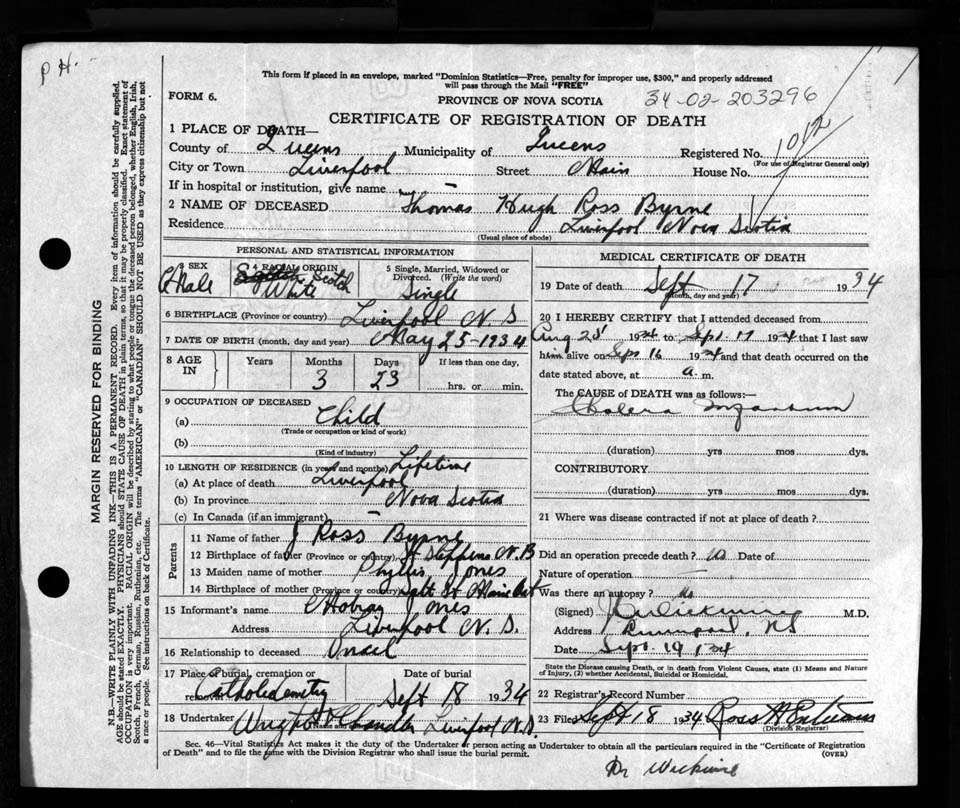 P H.
This form if placed in an envelope, marked "Dominion Statistics—Free, penalty for improper use, $300," and properly addressed
will pass through the Mail "FREE"
FORM 6.
PROVINCE OF NOVA SCOTIA
34-02-203296
CERTIFICATE OF REGISTRATION OF DEATH
1012
1 PLACE OF DEATH—
County of Queens Municipality of Queens Registered No.
(For use of Registrar General only)
City or Town Liverpool Street Main House No.
If in hospital or institution, give name —
2 NAME OF DECEASED Thomas Hugh Ross Byrne
Residence Liverpool Nova Scotia
(Usual place of abode)
PERSONAL AND STATISTICAL INFORMATION
3 SEX Male
4 RACIAL ORIGIN Scotch White
5 Single, Married, Widowed or Divorced. (Write the word) Single
6 BIRTHPLACE (Province or country) Liverpool N. S
7 DATE OF BIRTH (month, day and year) May 25-1934
8 AGE IN Years Months Days If less than one day,
3 23 hrs. or min.
9 OCCUPATION OF DECEASED
(a) Child
(Trade or occupation or kind of work)
(b)
(Kind of industry)
10 LENGTH OF RESIDENCE (in years and months) Lifetime
(a) At place of death Liverpool
(b) In province Nova Scotia
(c) In Canada (if an immigrant) —
Parents
11 Name of father J Ross Byrne
12 Birthplace of father (Province or country) St Stephens N. B
13 Maiden name of mother Phyllis Jones
14 Birthplace of mother (Province or country) Salt St Marie Ont
15 Informant's name Jones
Address Liverpool N. S.
16 Relationship to deceased Uncel
17 Place of burial, cremation or removal Date of burial
Sept 18 1934
18 Undertaker Chandler Liverpool N.S.
(Name and Address)
MEDICAL CERTIFICATE OF DEATH
19 Date of death Sept 17 1934
(Month, day and year)
20 I HEREBY CERTIFY that I attended deceased from
Aug 28 1934 to Sept 17 1934 that I last saw
him alive on Sept 16 1934 and that death occurred on the
date stated above, at a. m.
The CAUSE OF DEATH was as follows:—
Cholera Infantum
(duration) yrs mos dys.
CONTRIBUTORY
(duration) yrs mos dys.
21 Where was disease contracted if not at place of death?
Did an operation precede death? no Date of
Nature of operation
Was there an autopsy? no
(Signed) M.D.
Address Liverpool, NS
Date Sept. 19 1934
State the Disease causing Death, or in death from Violent Causes, state (1) Means and Nature
of Injury, (2) whether Accidental, Suicidal or Homicidal.
22 Registrar's Record Number
23 Filed Sept 18 1934 Ross
(Division Registrar)
Sec. 46—Vital Statistics Act makes it the duty of the Undertaker or person acting as Undertaker to obtain all the particulars required in the "Certificate of Registration
of Death" and to file the same with the Division Registrar who shall issue the burial permit.
(OVER)
Dr
MARGIN RESERVED FOR BINDING
N.B.—WRITE PLAINLY WITH UNFADING INK—THIS IS A PERMANENT RECORD. Every item of information should be carefully supplied.
AGE should be stated EXACTLY. PHYSICIANS should STATE CAUSE OF DEATH in plain terms, so that it may be properly classified. Exact statement of
OCCUPATION is very important. RACIAL ORIGIN will be described by stating to what people or tongue the deceased person belonged, whether English, Irish,
Scotch, French, German, Russian, Ruthenian, etc. The terms "AMERICAN" or "CANADIAN" SHOULD NOT BE USED as they express citizenship but not
a race or people. See instructions on back of Certificate.